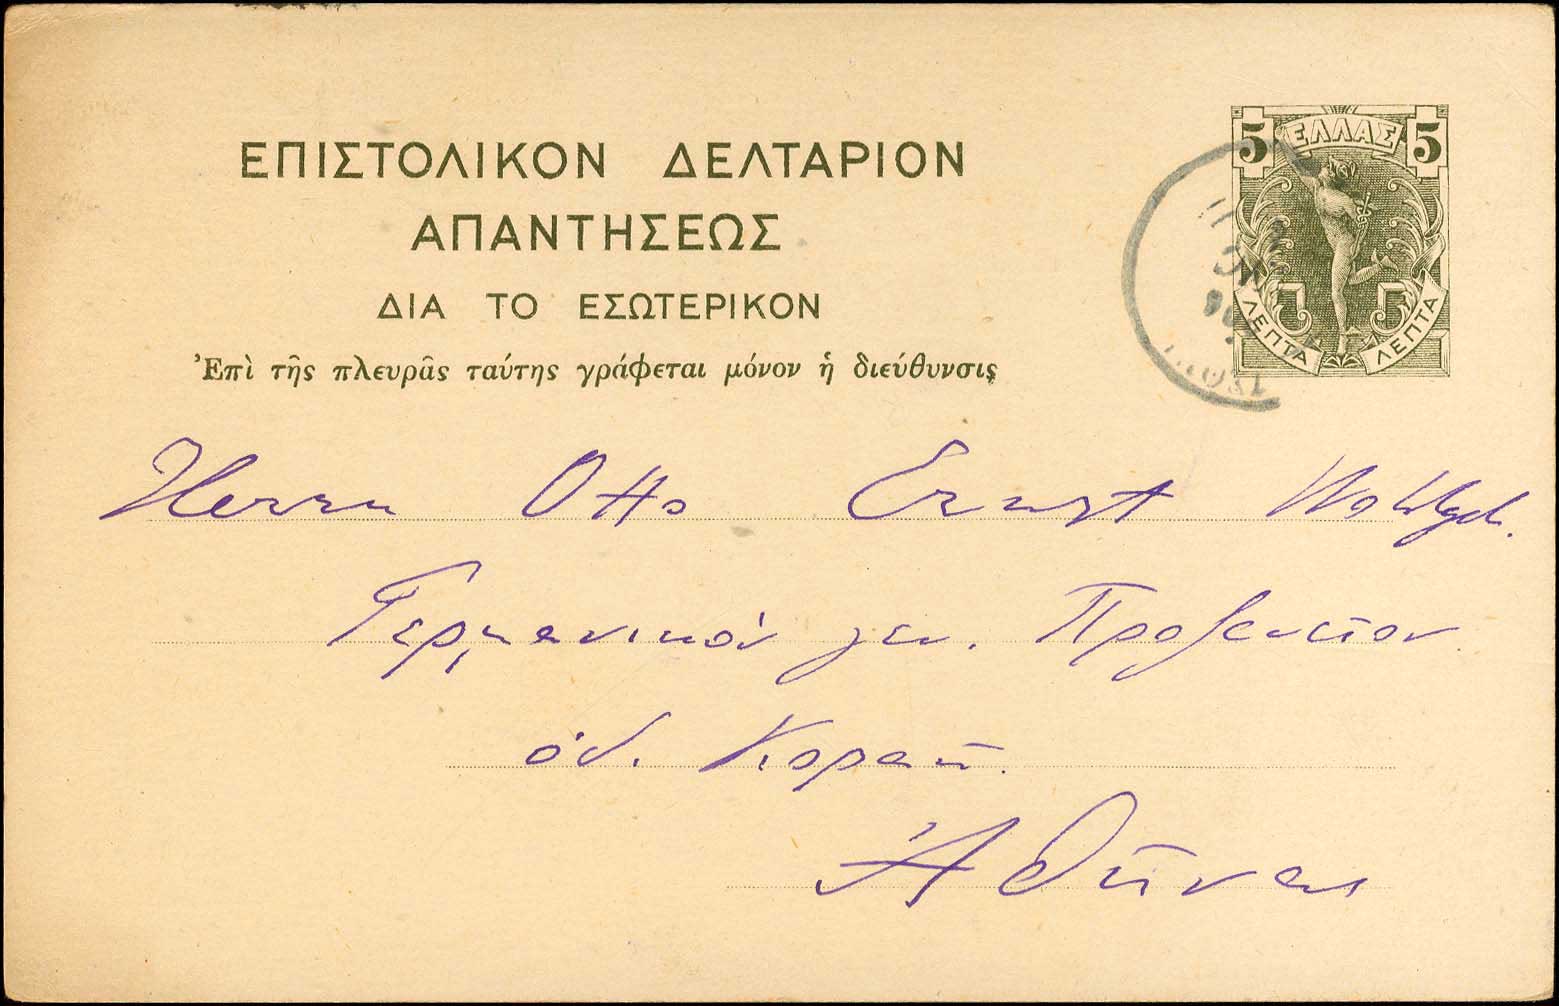 ΕΠΙΣΤΟΛΙΚΟΝ ΔΕΛΤΑΡΙΟΝ
ΑΠΑΝΤΗΣΕΩΣ
ΔΙΑ ΤΟ ΕΣΩΤΕΡΙΚΟΝ
Ἐπὶ τῆς πλευρᾶς ταύτης γράφεται μόνον ἡ διεύθυνσις
5 ΕΛΛΑΣ 5
5 5
ΛΕΠΤΑ ΛΕΠΤΑ
Herrn Otto Ernst
Γερμανικὸν γεν. Προξενεῖον
ὁδ. Κοραῆ.
Ἀθῆναι